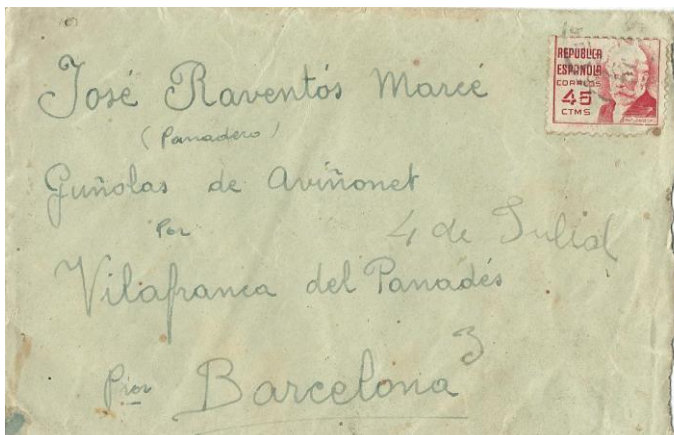 José Raventós Marcé
(Panadero)
Guñolas de Aviñonet
Por
4 de Juliol
Vilafranca del Panadés
por Barcelona 3
REPUBLICA
ESPAÑOLA
CORREOS
45
CTMS